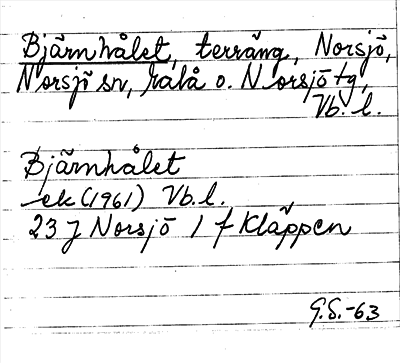 Bjärnhålet, terräng, Norsjö,
Norsjö sn, Malå o. Norsjö tg,
Vb. l.
Bjärnhålet
ek (1961) Vb. l.
23 J Norsjö 1 f Kläppen
G.S.-63